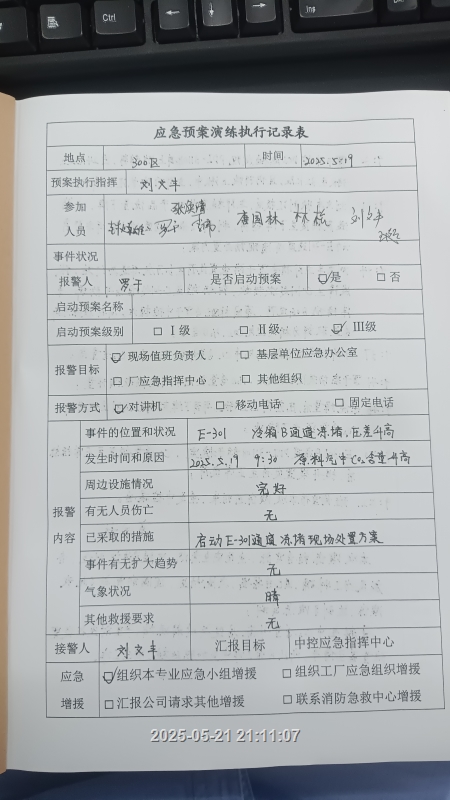 Ctrl
应急预案演练执行记录表
地点 300区 时间 2025.5.19
预案执行指挥 刘文丰
参加人员 唐国林 林栋
事件状况
报警人 罗干 是否启动预案 ☑是 □否
启动预案名称
启动预案级别 □Ⅰ级 □Ⅱ级 ☑Ⅲ级
报警目标 ☑现场值班负责人 □基层单位应急办公室
□厂应急指挥中心 □其他组织
报警方式 ☑对讲机 □移动电话 □固定电话
报警内容
事件的位置和状况 E-301 冷箱B通道冻堵,压差升高
发生时间和原因 2025.5.19 9:30 原料气中CO₂含量升高
周边设施情况 完好
有无人员伤亡 无
已采取的措施 启动E-301通道冻堵现场处置方案
事件有无扩大趋势 无
气象状况 晴
其他救援要求 无
接警人 刘文丰 汇报目标 中控应急指挥中心
应急增援 ☑组织本专业应急小组增援 □组织工厂应急组织增援
□汇报公司请求其他增援 □联系消防急救中心增援
2025-05-21 21:11:07